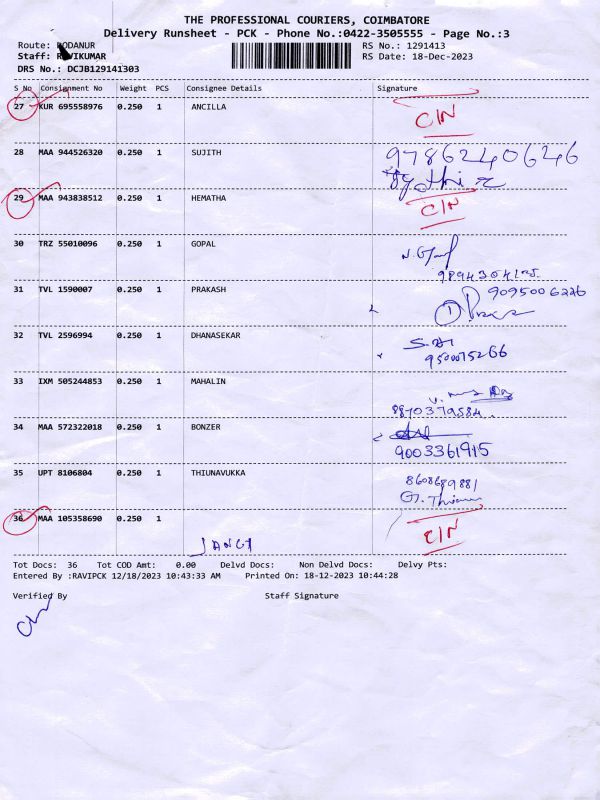 THE PROFESSIONAL COURIERS, COIMBATORE
Delivery Runsheet - PCK - Phone No.:0422-3505555 - Page No.:3
Route: PODANUR RS No.: 1291413
Staff: RAVIKUMAR RS Date: 18-Dec-2023
DRS No.: DCJB129141303
S No Consignment No Weight PCS Consignee Details Signature
27 KUR 695558976 0.250 1 ANCILLA C/N
28 MAA 944526320 0.250 1 SUJITH 9786240646
29 MAA 943838512 0.250 1 HEMATHA C/N
30 TRZ 55010096 0.250 1 GOPAL
31 TVL 1590007 0.250 1 PRAKASH 9095006226
32 TVL 2596994 0.250 1 DHANASEKAR
9500075266
33 IXM 505244853 0.250 1 MAHALIN
8870379584
34 MAA 572322018 0.250 1 BONZER
9003361915
35 UPT 8106804 0.250 1 THIUNAVUKKA 8608689881
36 MAA 105358690 0.250 1 C/N
Tot Docs: 36 Tot COD Amt: 0.00 Delvd Docs: Non Delvd Docs: Delvy Pts:
Entered By :RAVIPCK 12/18/2023 10:43:33 AM Printed On: 18-12-2023 10:44:28
Verified By Staff Signature